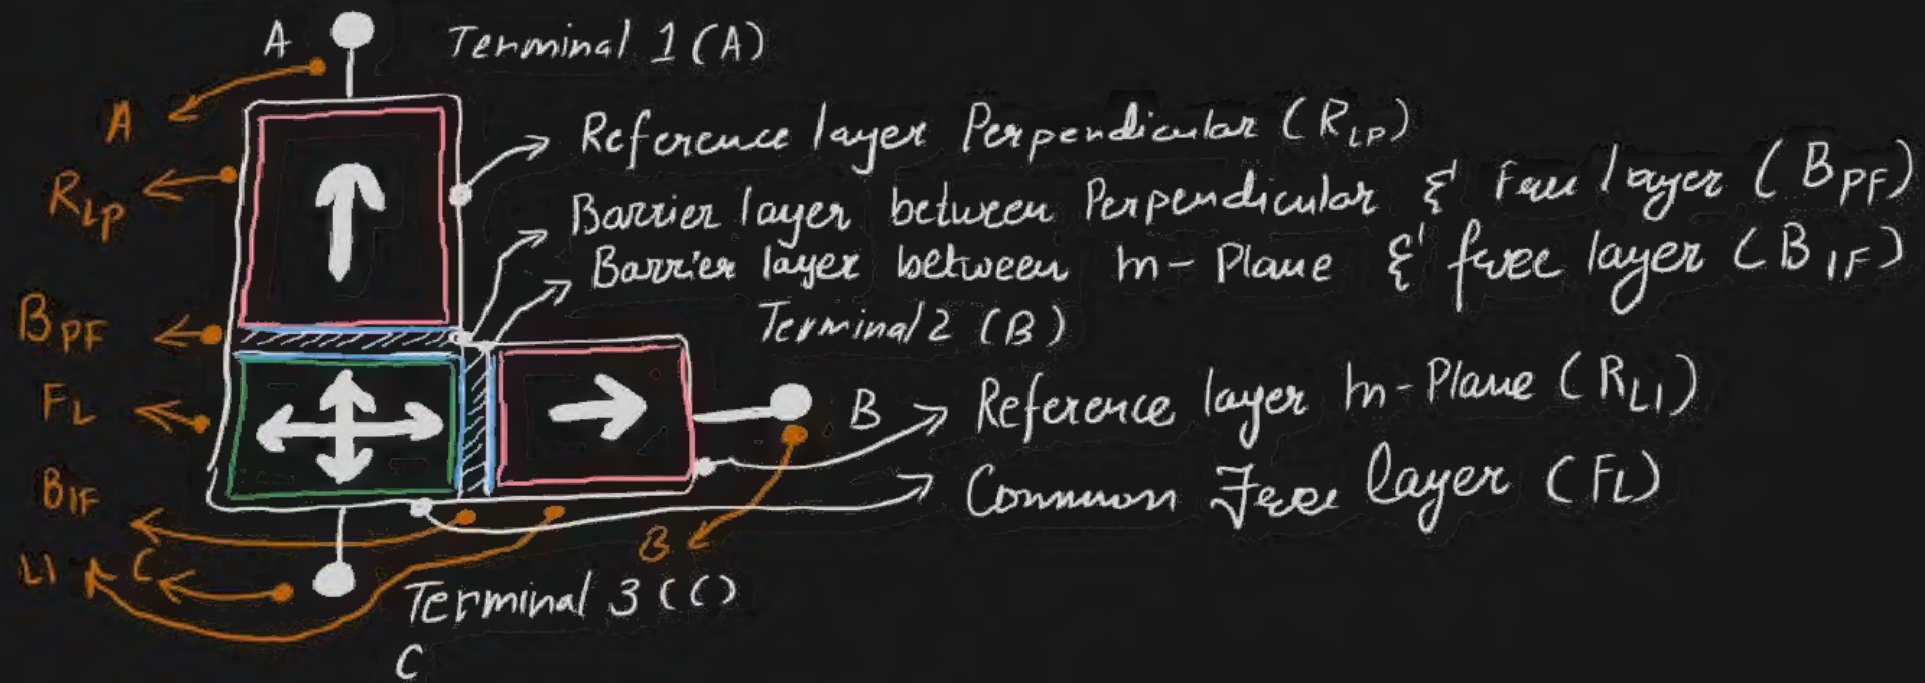 A Terminal 1 (A)
A
Reference layer Perpendicular (RLP)
RLP
Barrier layer between Perpendicular & Free layer (BPF)
Barrier layer between In-Plane & free layer (BIF)
Terminal 2 (B)
BPF
FL
B Reference layer In-Plane (RLI)
Common Free layer (FL)
BIF
B
LI C
Terminal 3 (C)
C